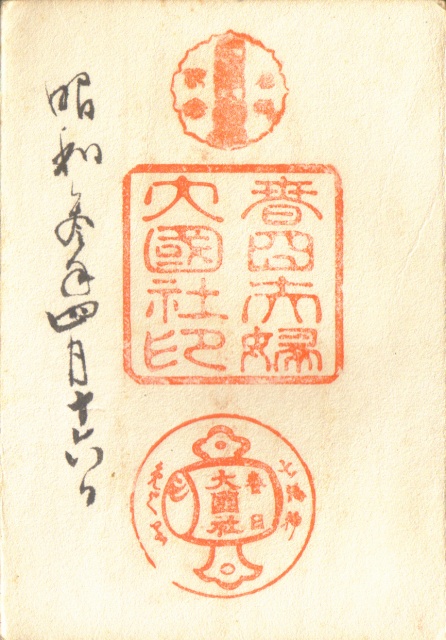 春日夫婦
大國社印
昭和参年四月十六日
春日
大國社
七福神